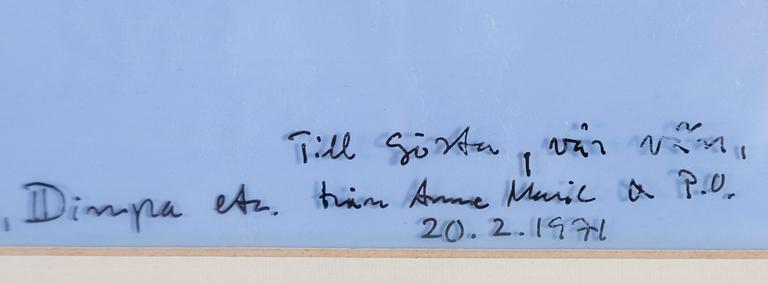 Till Gösta, vår vän,
Dimpa etc. från Anne Marie & P.O.
20.2.1971